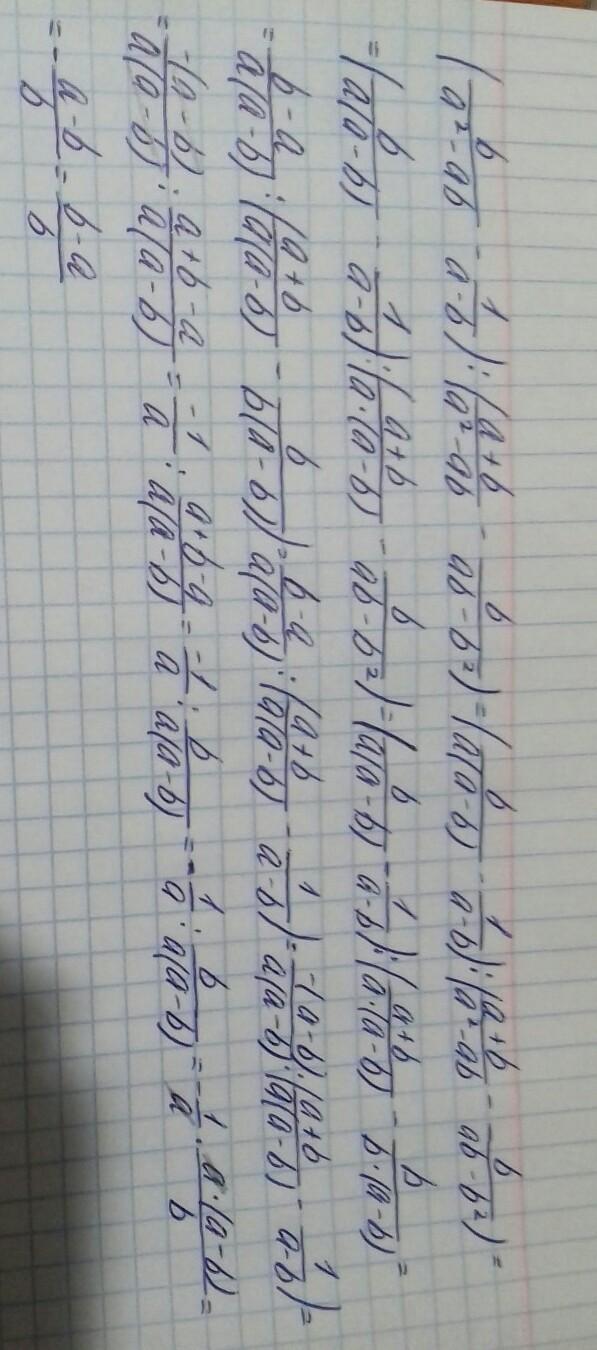 (b/(a²-ab) - 1/(a-b)) : ((a+b)/(a²-ab) - b/(ab-b²)) = (b/(a(a-b)) - 1/(a-b)) : ((a+b)/(a²-ab) - b/(ab-b²)) =
= (b/(a(a-b)) - 1/(a-b)) : ((a+b)/(a·(a-b)) - b/(ab-b²)) = (b/(a(a-b)) - 1/(a-b)) : ((a+b)/(a·(a-b)) - b/(b·(a-b)) =
= (b-a)/(a(a-b)) : ((a+b)/(a(a-b)) - b/(b(a-b))) = (b-a)/(a(a-b)) : ((a+b)/(a(a-b)) - 1/(a-b)) = -(a-b)/(a(a-b)) : ((a+b)/(a(a-b)) - 1/(a-b)) =
= -(a-b)/(a(a-b)) : (a+b-a)/(a(a-b)) = -1/a : (a+b-a)/(a(a-b)) = -1/a : b/(a(a-b)) = -1/a : b/(a(a-b)) = -1/a · a·(a-b)/b =
= -(a-b)/b = (b-a)/b